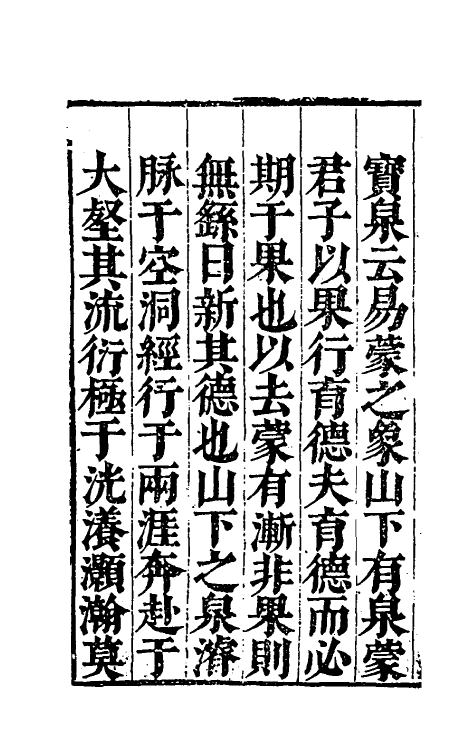 寶泉云易蒙之象山下有泉蒙
君子以果行育德夫育德而必
期于果也以去蒙有漸非果則
無繇日新其德也山下之泉濬
脉于空洞經行于兩涯奔赴于
大壑其流衍極于洸瀁灝瀚莫